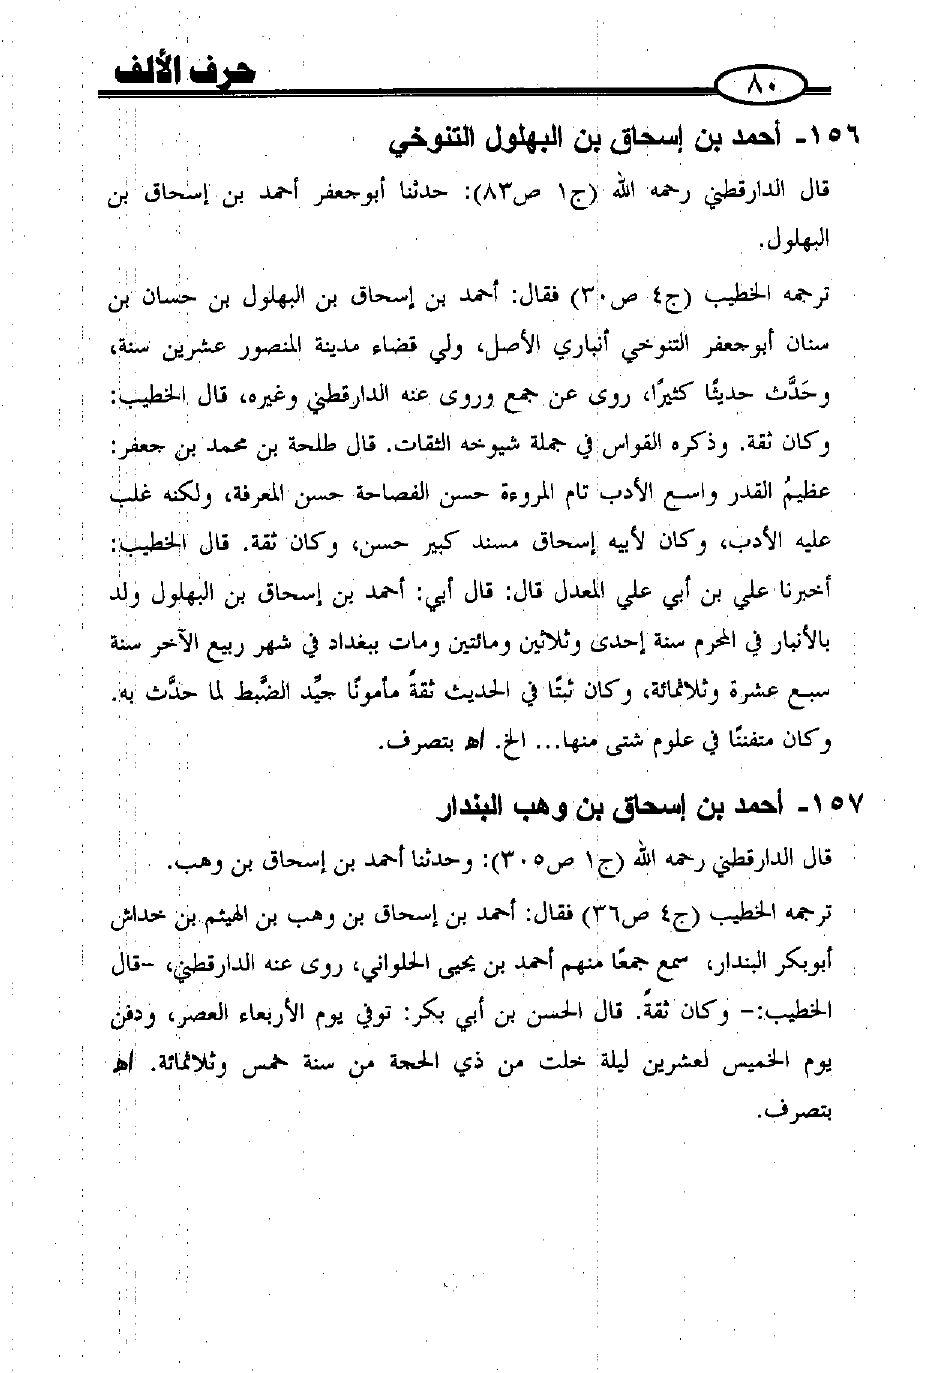 حرف الألف
٨٠
١٥٦- أحمد بن إسحاق بن البهلول التنوخي
قال الدارقطني رحمه الله (ج١ ص٨٣): حدثنا أبوجعفر أحمد بن إسحاق بن
البهلول.
ترجمه الخطيب (ج٤ ص٣٠) فقال: أحمد بن إسحاق بن البهلول بن حسان بن
سنان أبوجعفر التنوخي أنباري الأصل، ولي قضاء مدينة المنصور عشرين سنة،
وحَدَّث حديثًا كثيرًا، روى عن جمع وروى عنه الدارقطني وغيره، قال الخطيب:
وكان ثقة. وذكره القواس في جملة شيوخه الثقات. قال طلحة بن محمد بن جعفر:
عظيمُ القدر واسع الأدب تام المروءة حسن الفصاحة حسن المعرفة، ولكنه غلب
عليه الأدب، وكان لأبيه إسحاق مسند كبير حسن، وكان ثقة. قال الخطيب:
أخبرنا علي بن أبي علي المعدل قال: قال أبي: أحمد بن إسحاق بن البهلول ولد
بالأنبار في المحرم سنة إحدى وثلاثين ومائتين ومات ببغداد في شهر ربيع الآخر سنة
سبع عشرة وثلاثمائة، وكان ثبتًا في الحديث ثقةً مأمونًا جيِّد الضَّبط لما حدَّث به.
وكان متفننًا في علوم شتى منها... الخ. اﻫ بتصرف.
١٥٧- أحمد بن إسحاق بن وهب البندار
قال الدارقطني رحمه الله (ج١ ص٣٠٥): وحدثنا أحمد بن إسحاق بن وهب.
ترجمه الخطيب (ج٤ ص٣٦) فقال: أحمد بن إسحاق بن وهب بن الهيثم بن خداش
أبوبكر البندار، سمع جمعًا منهم أحمد بن يحيى الحلواني، روى عنه الدارقطني، -قال
الخطيب:- وكان ثقةً. قال الحسن بن أبي بكر: توفي يوم الأربعاء العصر، ودفن
يوم الخميس لعشرين ليلة خلت من ذي الحجة من سنة خمس وثلاثمائة. اﻫ
بتصرف.